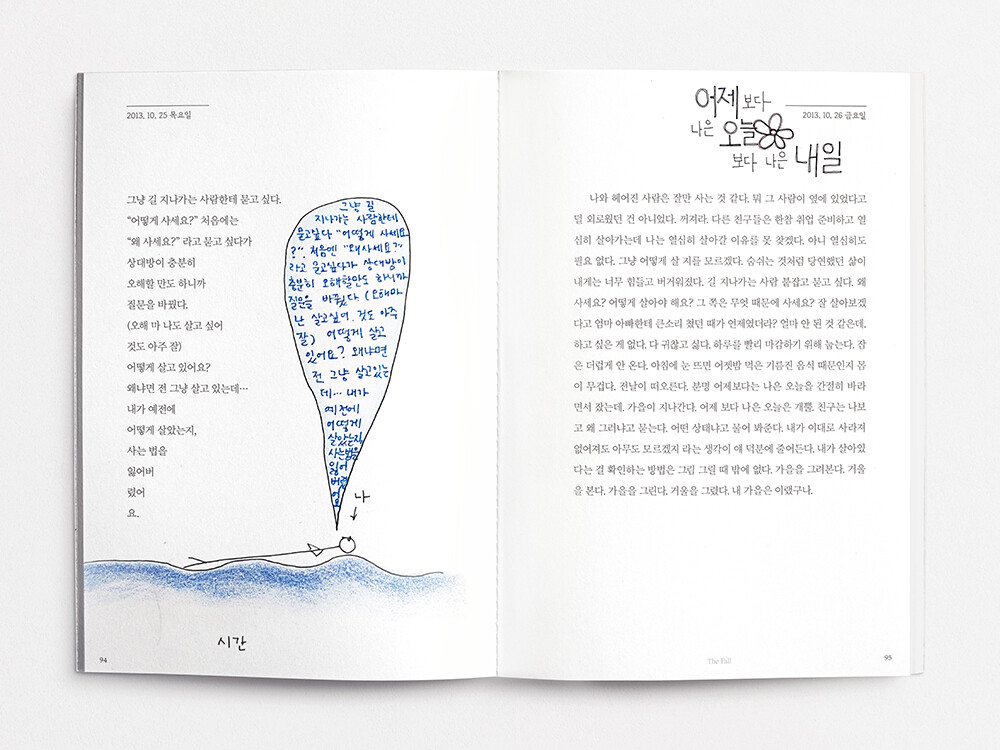 2013. 10. 25 목요일
그냥 길 지나가는 사람한테 묻고 싶다.
“어떻게 사세요?” 처음에는
“왜 사세요?” 라고 묻고 싶다가
상대방이 충분히
오해할 만도 하니까
질문을 바꿨다.
(오해 마 나도 살고 싶어
것도 아주 잘)
어떻게 살고 있어요?
왜냐면 전 그냥 살고 있는데…
내가 예전에
어떻게 살았는지,
사는 법을
잃어버
렸어
요.
그냥 길
지나가는 사람한테
묻고싶다 “어떻게 사세요
?”. 처음엔 “왜사세요?”
라고 묻고싶다가 상대방이
충분히 오해할만도 하니까
질문을 바꿨다 (오해마
난 살고싶어. 것도 아주
잘) 어떻게 살고
있어요? 왜냐면
전 그냥 살고있는
데… 내가
예전에
어떻게
살았는지,
사는법을
잃어
버렸
어
나
시간
94
어제 보다
나은 오늘
보다 나은 내일
2013. 10. 26 금요일
나와 헤어진 사람은 잘만 사는 것 같다. 뭐 그 사람이 옆에 있었다고
덜 외로웠던 건 아니었다. 꺼져라. 다른 친구들은 한참 취업 준비하고 열
심히 살아가는데 나는 열심히 살아갈 이유를 못 찾겠다. 아니 열심히도
필요 없다. 그냥 어떻게 살 지를 모르겠다. 숨쉬는 것처럼 당연했던 삶이
내게는 너무 힘들고 버거워졌다. 길 지나가는 사람 붙잡고 묻고 싶다. 왜
사세요? 어떻게 살아야 해요? 그 쪽은 무엇 때문에 사세요? 잘 살아보겠
다고 엄마 아빠한테 큰소리 쳤던 때가 언제였더라? 얼마 안 된 것 같은데,
하고 싶은 게 없다. 다 귀찮고 싫다. 하루를 빨리 마감하기 위해 눕는다. 잠
은 더럽게 안 온다. 아침에 눈 뜨면 어젯밤 먹은 기름진 음식 때문인지 몸
이 무겁다. 전날이 떠오른다. 분명 어제보다는 나은 오늘을 간절히 바라
면서 잤는데. 가을이 지나간다. 어제 보다 나은 오늘은 개뿔. 친구는 나보
고 왜 그러냐고 묻는다. 어떤 상태냐고 물어 봐준다. 내가 이대로 사라져
없어져도 아무도 모르겠지 라는 생각이 얘 덕분에 줄어든다. 내가 살아있
다는 걸 확인하는 방법은 그림 그릴 때 밖에 없다. 가을을 그려본다. 거울
을 본다. 가을을 그린다. 거울을 그렸다. 내 가을은 이랬구나.
The Fall
95